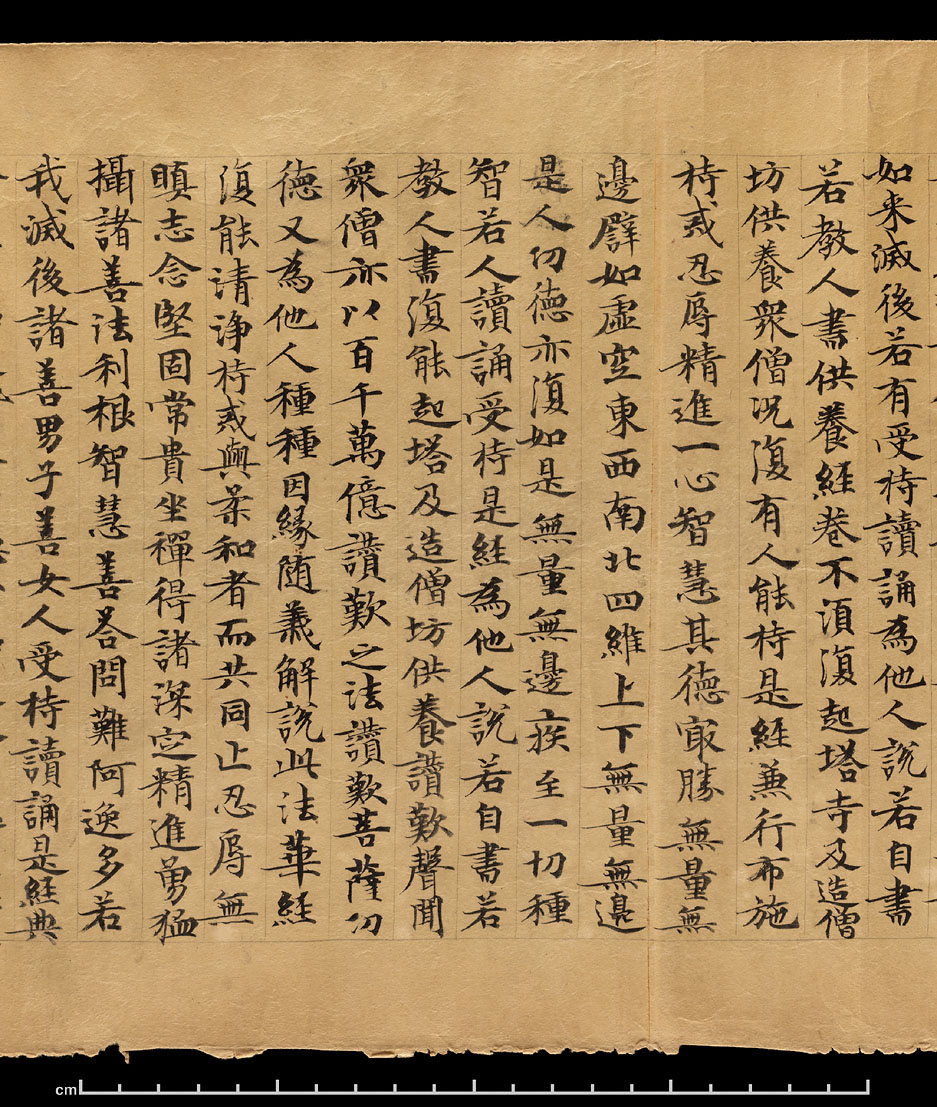 如来滅後若有受持讀誦為他人說若自書
若教人書供養經卷不湏復起塔寺及造僧
坊供養衆僧况復有人能持是經兼行布施
持戒忍辱精進一心智慧其德冣勝無量無
邊譬如虛空東西南北四維上下無量無邊
是人功德亦復如是無量無邊疾至一切種
智若人讀誦受持是經為他人說若自書若
教人書復能起塔及造僧坊供養讚歎聲聞
衆僧亦以百千萬億讚歎之法讚歎菩薩功
德又為他人種種因緣随義解說此法華經
復能清浄持戒與柔和者而共同止忍辱無
瞋志念堅固常貴坐禪得諸深定精進勇猛
攝諸善法利根智慧善荅問難阿逸多若
我滅後諸善男子善女人受持讀誦是經典
cm